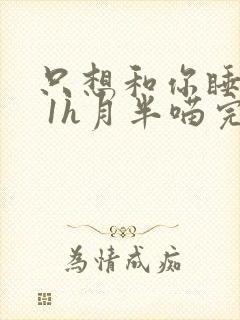 只想和你睡
1h月半喵完
为情成痴